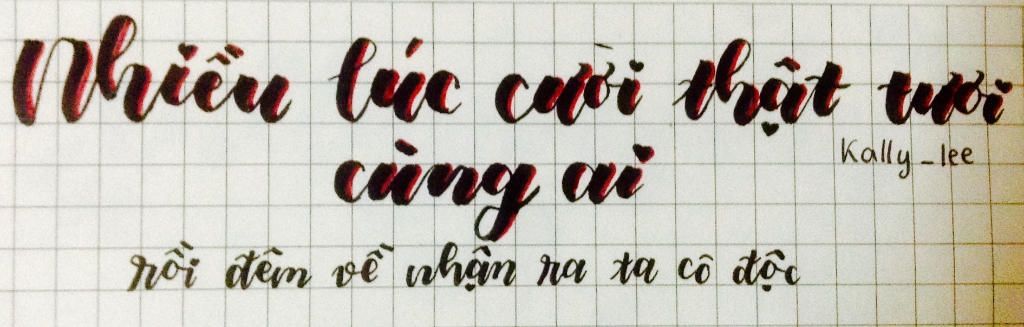 Nhiều lúc cười thật tươi
Kally_lee
cùng ai
rồi đêm về nhận ra ta cô độc